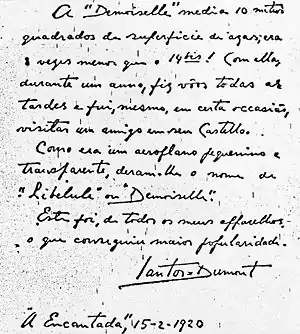 A "Demoiselle" media 10 metros
quadrados de superficie de azas; era
8 vezes menos que o 14 bis! Com ella,
durante um anno, fiz vôos todas as
tardes e fui, mesmo, em certa occasião,
visitar um amigo em seu Castello.
Como era um aeroplano pequenino e
transparente, deram-lhe o nome de
"Libelule" ou "Demoiselle".
Este foi, de todos os meus apparelhos,
o que conseguiu maior popularidade.
Santos=Dumont
"A Encantada", 15-2-1920